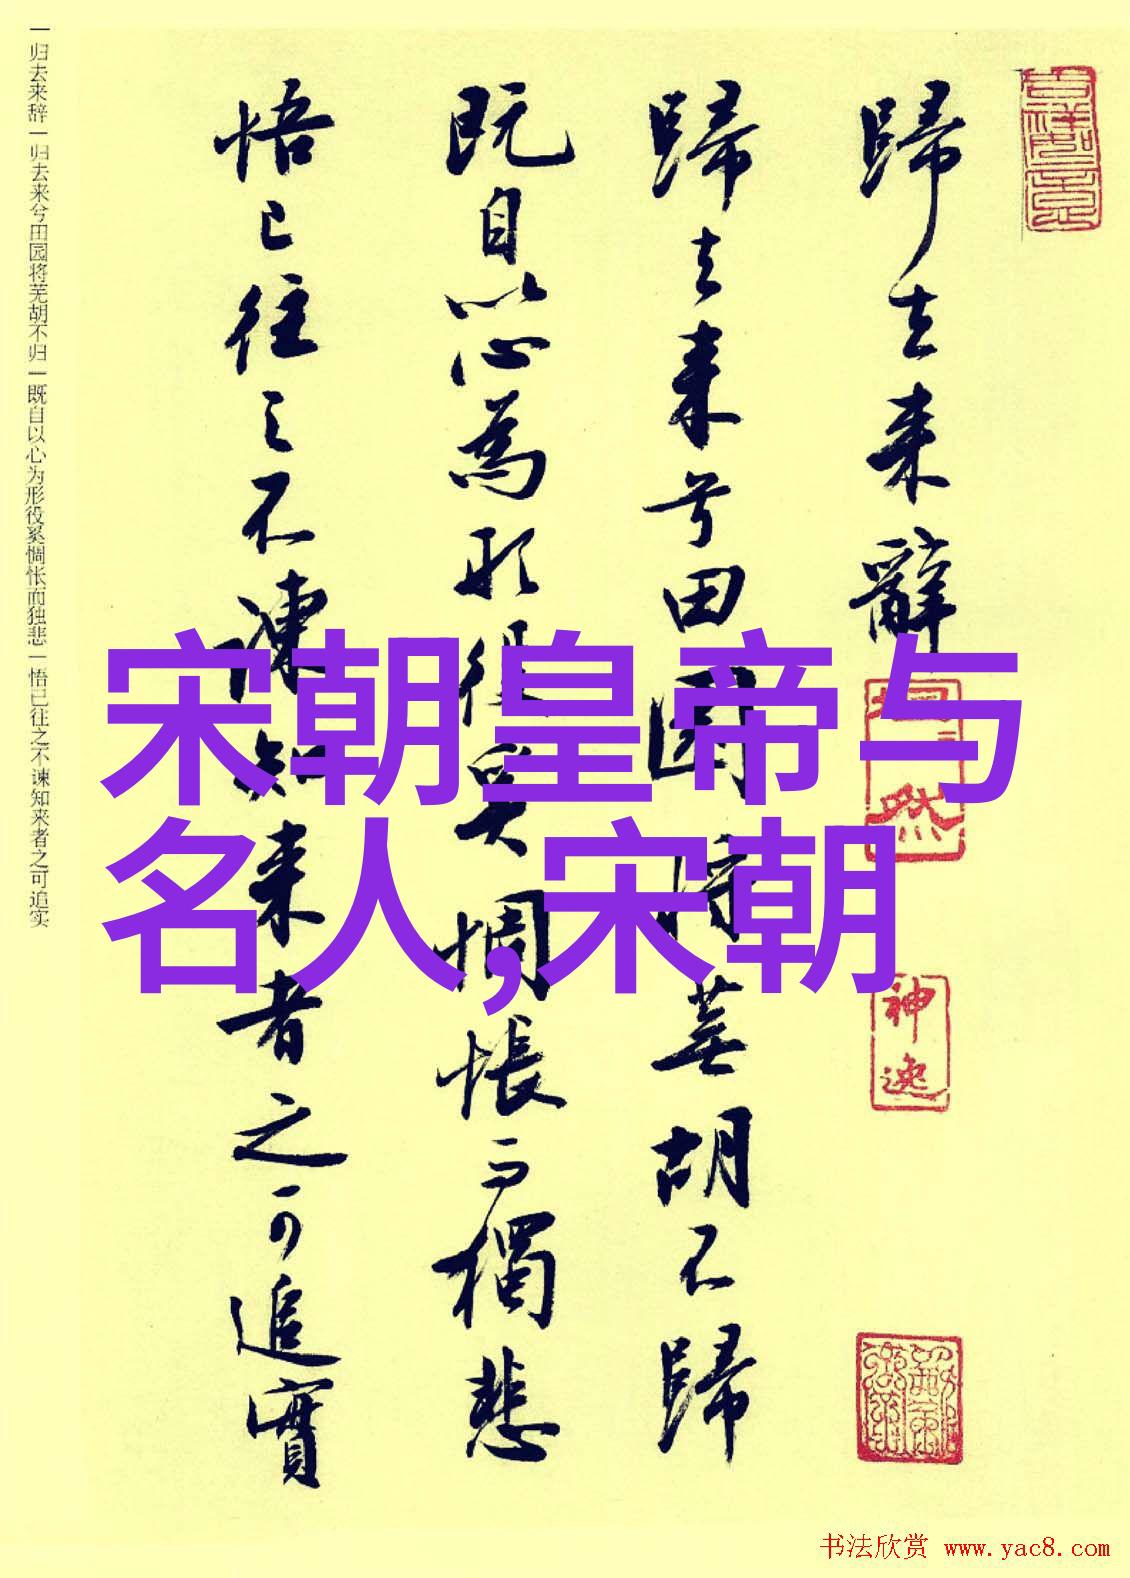 歸去来辭
歸去来兮田園将蕪胡不歸
既自以心為形役奚惆悵而獨悲
悟已往之不諫知来者之可追實
一归去来辞一归去来兮田园将芜胡不归一既自以心为形役奚惆怅而独悲一悟已往之不谏知来者之可追实
宋朝皇帝与
名人,宋朝
神逸
书法欣赏 www.yac8.com